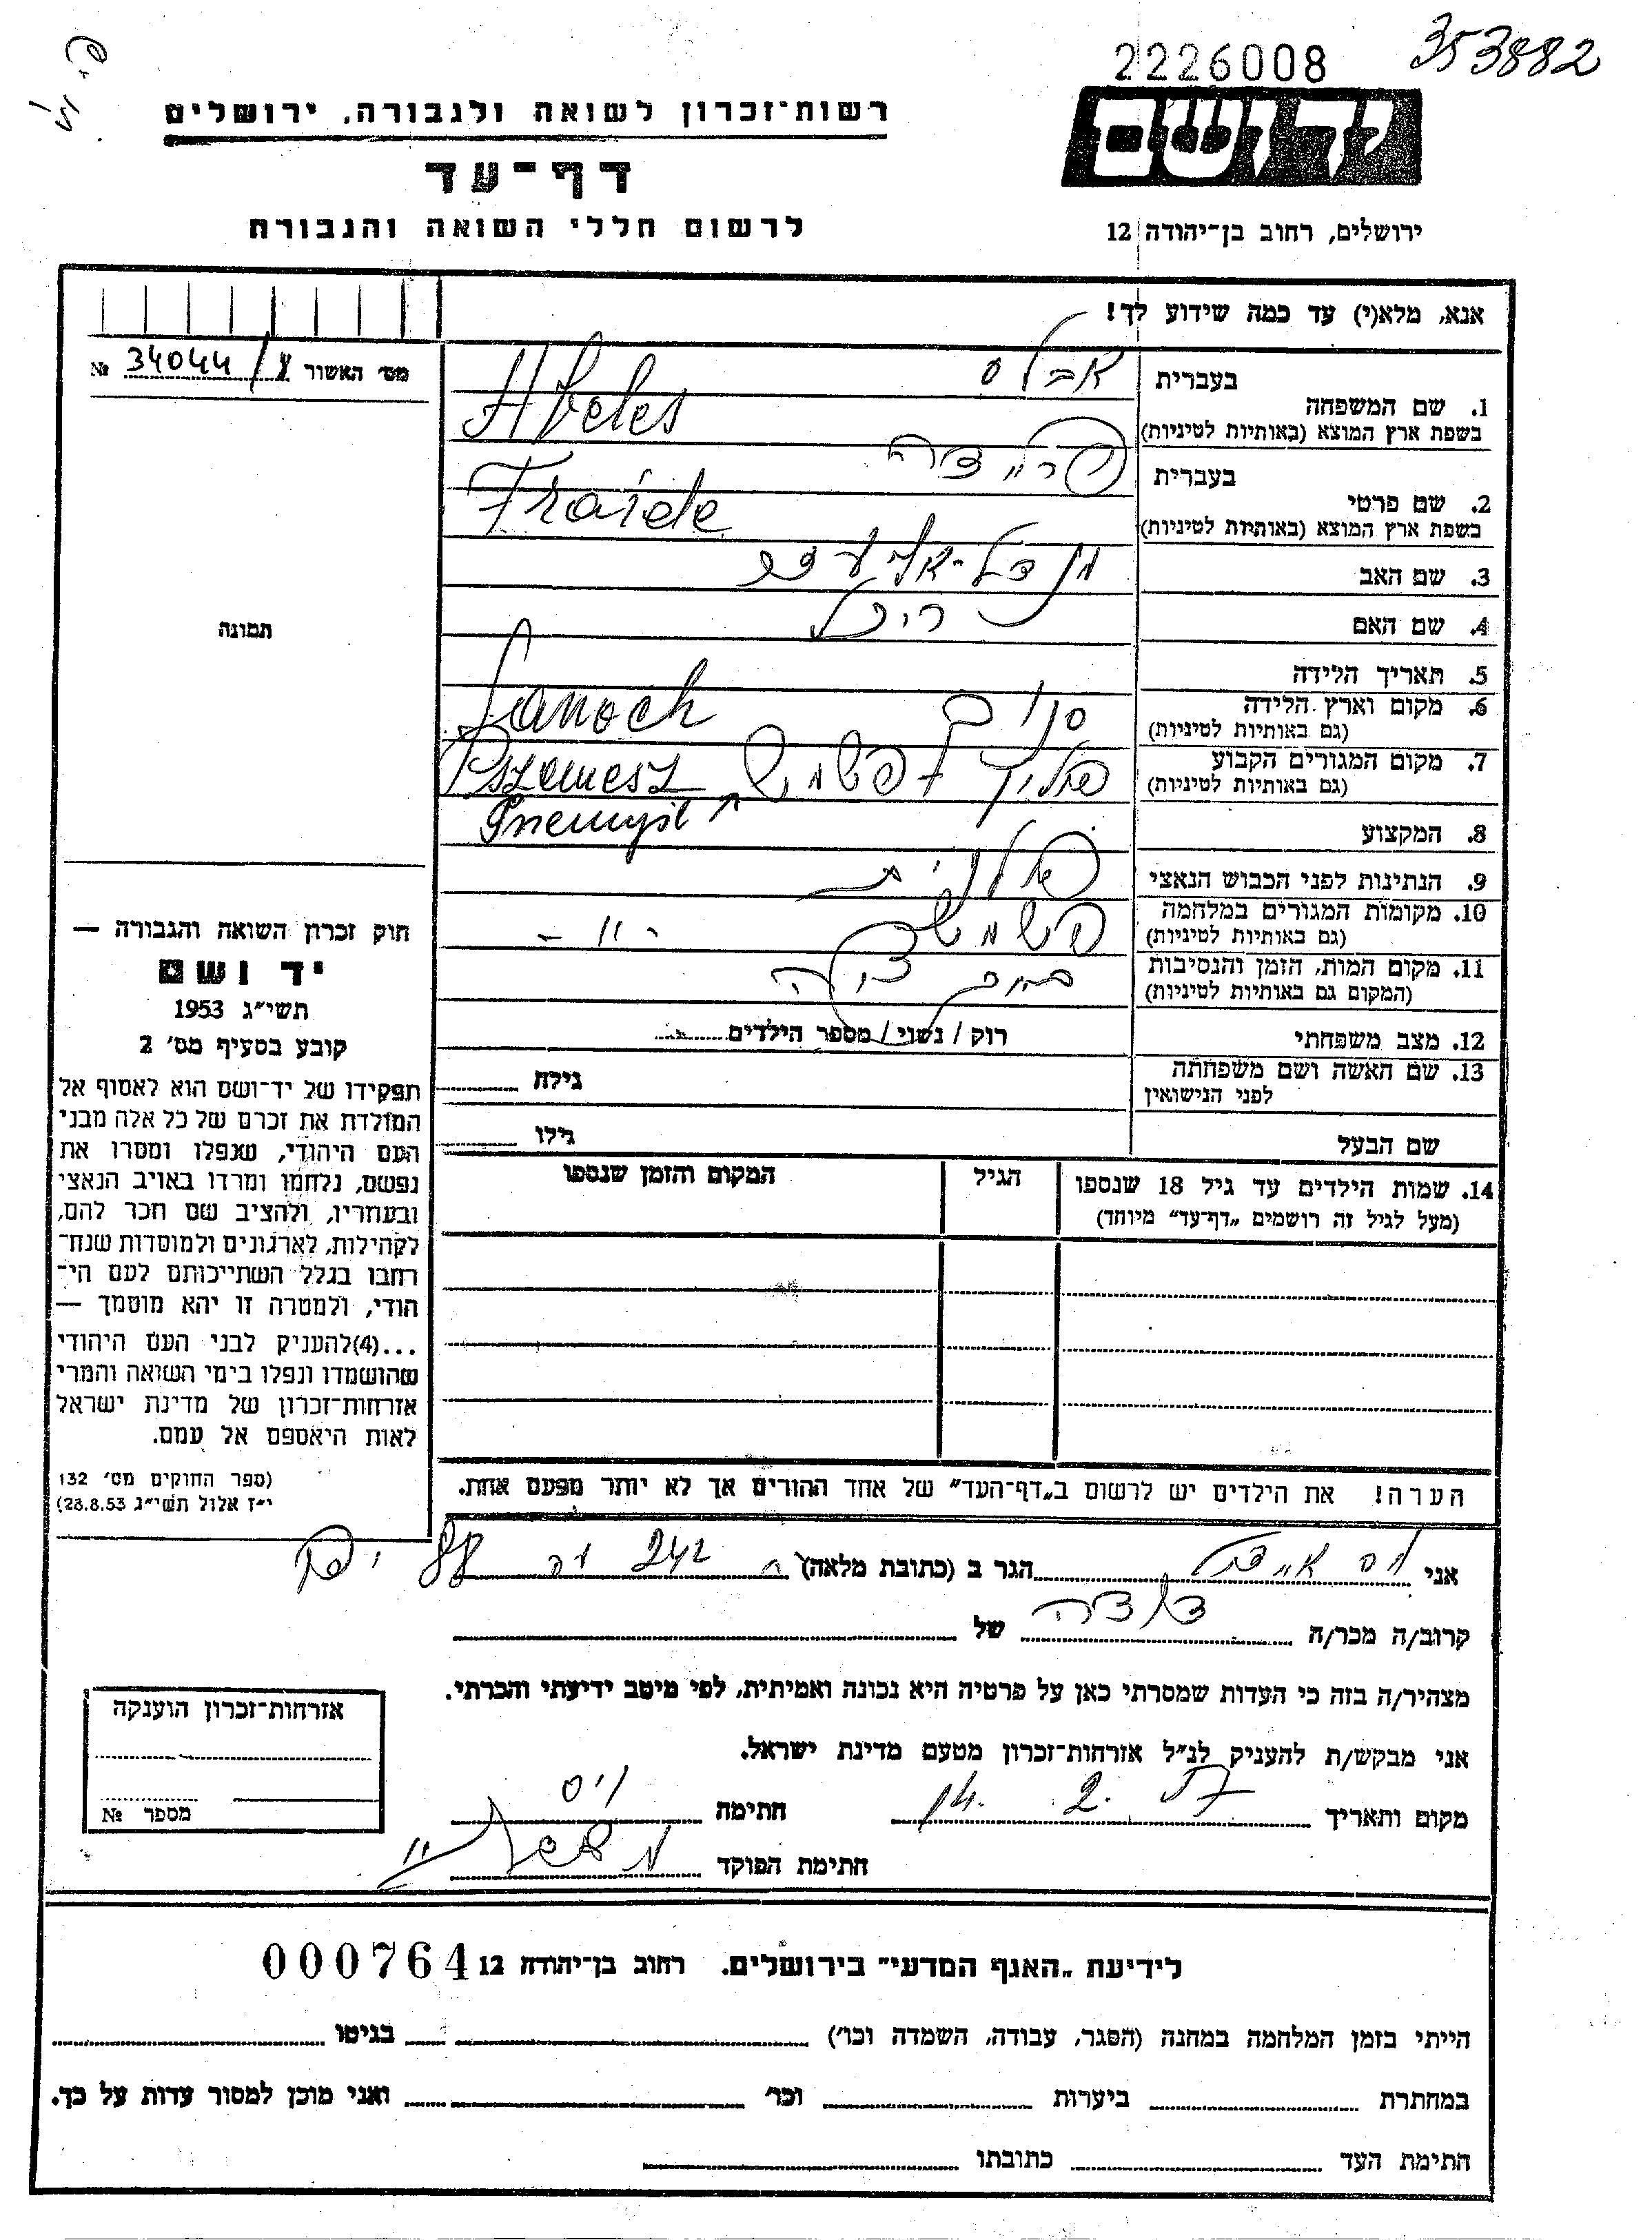 2226008
353882
רשות־זכרון לשואה ולגבורה, ירושלים
ידושם
דף־עד
לרשום חללי השואה והגבורה
ירושלים, רחוב בן־יהודה 12
אנא, מלא(י) עד כמה שידוע לך!
מס׳ האשור 34044/ №
בעברית
אבלס
1. שם המשפחה
בשפת ארץ המוצא (באותיות לטיניות)
Abeles
בעברית
פריידה
2. שם פרטי
בשפת ארץ המוצא (באותיות לטיניות)
Fraide
3. שם האב
4. שם האם
רוכל
תמונה
5. תאריך הלידה
6. מקום וארץ הלידה
(גם באותיות לטיניות)
סנוק Sanoch
7. מקום המגורים הקבוע
(גם באותיות לטיניות)
פשמיש Pszemesz
Przemyśl
8. המקצוע
9. הנתינות לפני הכבוש הנאצי
פולנית
10. מקומות המגורים במלחמה
(גם באותיות לטיניות)
פשמיש — " —
11. מקום המות, הזמן והנסיבות
(המקום גם באותיות לטיניות)
12. מצב משפחתי
רוק / נשוי / מספר הילדים
13. שם האשה ושם משפחתה
לפני הנישואין
גילה
שם הבעל
גילו
14. שמות הילדים עד גיל 18 שנספו
(מעל לגיל זה רושמים „דף־עד״ מיוחד)
הגיל
המקום והזמן שנספו
חוק זכרון השואה והגבורה —
יד ושם
תשי״ג 1953
קובע בסעיף מס׳ 2
תפקידו של יד־ושם הוא לאסוף אל
המולדת את זכרם של כל אלה מבני
העם היהודי, שנפלו ומסרו את
נפשם, נלחמו ומרדו באויב הנאצי
ובעוזריו, ולהציב שם וזכר להם,
לקהילות, לארגונים ולמוסדות שנח־
רבו בגלל השתייכותם לעם הי־
הודי, ולמטרה זו יהא מוסמך —
...(4)להעניק לבני העם היהודי
שהושמדו ונפלו בימי השואה והמרי
אזרחות־זכרון של מדינת ישראל
לאות היאספם אל עמם.
(ספר החוקים מס׳ 132
י״ז אלול תשי״ג 28.8.53)
הערה! את הילדים יש לרשום ב„דף־העד״ של אחד ההורים אך לא יותר מפעם אחת.
אני
הגר ב (כתובת מלאה)
242 יפו
קרוב/ה מכר/ה דודה של
מצהיר/ה בזה כי העדות שמסרתי כאן על פרטיה היא נכונה ואמיתית, לפי מיטב ידיעתי והכרתי.
אני מבקש/ת להעניק לנ״ל אזרחות־זכרון מטעם מדינת ישראל.
מקום ותאריך
חתימה ויס
חתימת הפוקד
אזרחות־זכרון הוענקה
מספר №
לידיעת „האגף המדעי״ בירושלים. רחוב בן־יהודה 12
000764
הייתי בזמן המלחמה במחנה (הסגר, עבודה, השמדה וכו׳) בגיטו
במחתרת ביערות וכו׳ ואני מוכן למסור עדות על כך.
חתימת העד כתובתו